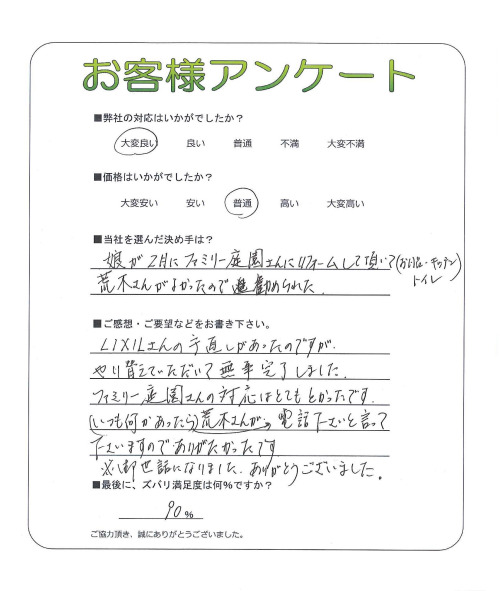 お客様アンケート
■弊社の対応はいかがでしたか？
大変良い 良い 普通 不満 大変不満
■価格はいかがでしたか？
大変安い 安い 普通 高い 大変高い
■当社を選んだ決め手は？
娘が2月にファミリー庭園さんにリフォームして頂いて(お風呂・キッチン
トイレ)
荒木さんがよかったので勧められた.
■ご感想・ご要望などをお書き下さい。
LIXILさんの手直しがあったのですが.
やり替えていただいて無事完了しました.
ファミリー庭園さんの対応はとてもよかったです.
(いつも何かあったら)荒木さんが 電話下さいと言って
下さいますのでありがたかったです
※御世話になりました. ありがとうございました。
■最後に、ズバリ満足度は何%ですか？
90%
ご協力頂き、誠にありがとうございました。